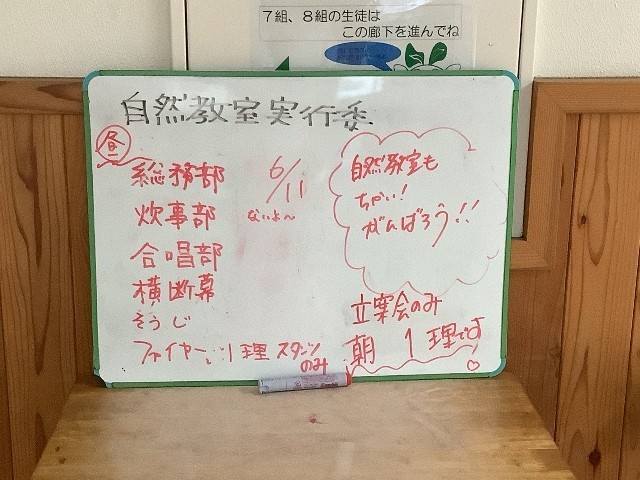 7組、8組の生徒は
この廊下を進んでね
自然教室実行委
昼
総務部
6/11
ないよ〜
炊事部
合唱部
横断幕
そうじ
ファイヤー、1理 スタンツ
のみ
自然教室も
ちかい!
がんばろう!!
立案会のみ
朝 1理です